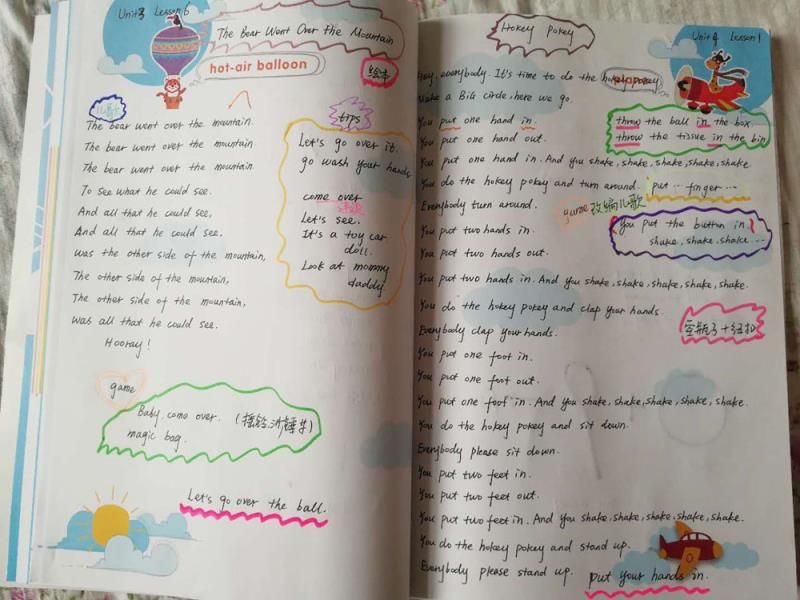 Unit3 Lesson6
The Bear Went Over the Mountain
hot-air balloon
绘本
儿歌
The bear went over the mountain.
The bear went over the mountain.
The bear went over the mountain
To see what he could see.
And all that he could see,
And all that he could see,
was the other side of the mountain,
The other side of the mountain,
The other side of the mountain,
was all that he could see.
Hooray!
tips
Let's go over it.
go wash your hands
come over
Let's see.
It's a toy car
doll.
Look at mommy
daddy.
game
Baby, come over.
magic bag.
Let's go over the ball.
Hokey Pokey
Unit4 Lesson1
Hey, everybody. It's time to do the hokey pokey
Make a Big circle, here we go.
You put one hand in.
You put one hand out.
You put one hand in. And you shake, shake, shake, shake, shake
You do the hokey pokey and turn around.
Everybody turn around.
You put two hands in.
You put two hands out.
You put two hands in. And You shake, shake, shake, shake, shake.
You do the hokey pokey and clap your hands.
Everybody clap your hands.
You put one foot in.
You put one foot out.
You put one foot in. And You shake, shake, shake, shake, shake.
You do the hokey pokey and sit down.
Everybody please sit down.
You put two feet in.
You put two feet out.
You put two feet in. And You shake, shake, shake, shake, shake.
You do the hokey pokey and stand up.
Everybody please stand up.
put your hands in.
throw the ball in the box.
throw the tissue in the bin
put ... finger ...
game 改编儿歌
you put the button in.
shake, shake, shake ...
空瓶子+纽扣